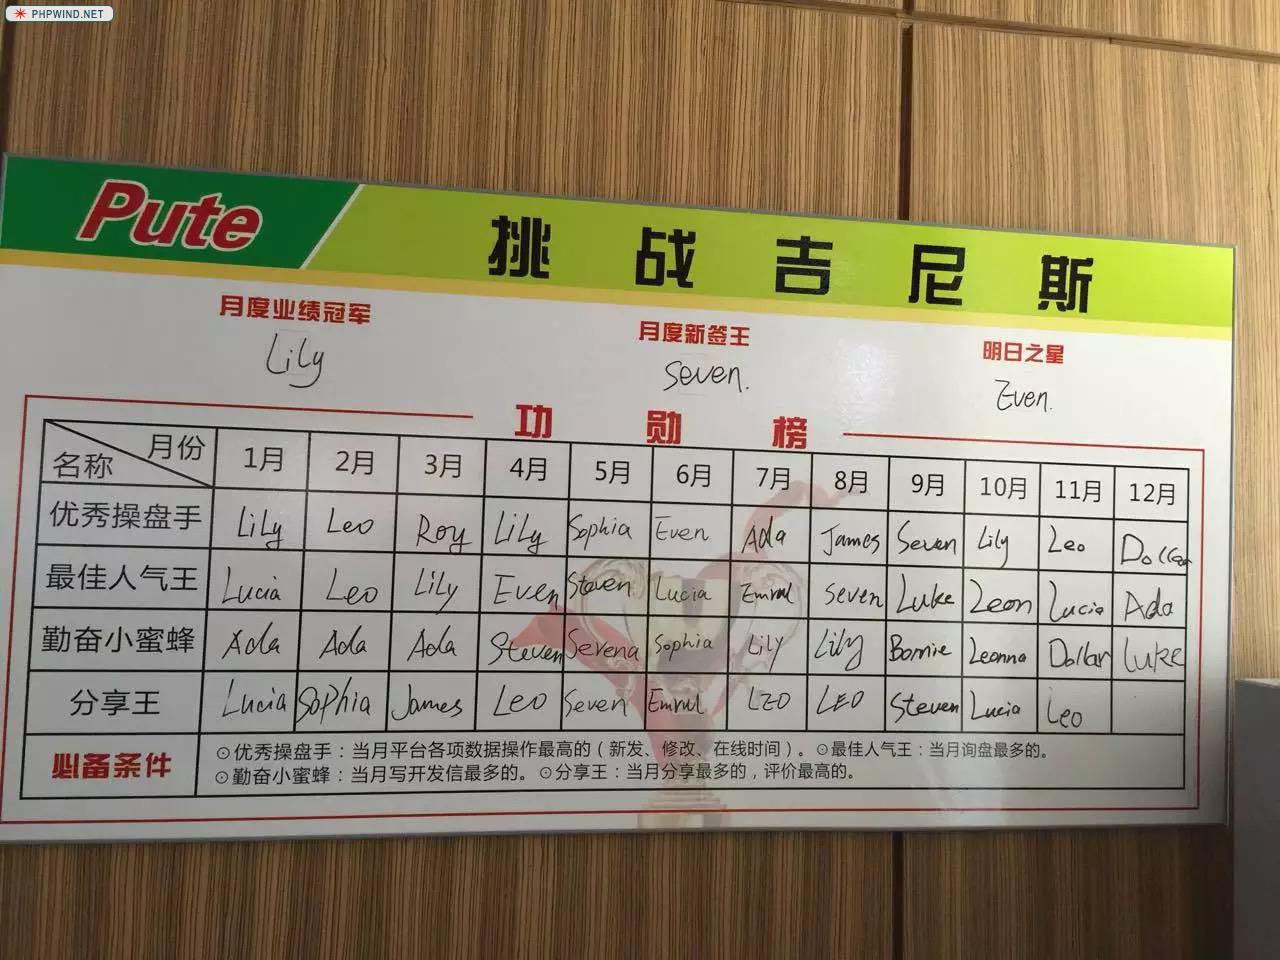 PHPWIND.NET
Pute 挑战吉尼斯
月度业绩冠军 月度新签王 明日之星
Lily Seven. Even.
功勋榜
月份 名称 1月 2月 3月 4月 5月 6月 7月 8月 9月 10月 11月 12月
优秀操盘手 Lily Leo Roy Lily Sophia Even Ada James Seven Lily Leo
最佳人气王 Lucia Leo Lily Even Steven Lucia Emrul Seven Luke Leon Lucia Ada
勤奋小蜜蜂 Ada Ada Ada Steven Serena Sophia Lily Lily Bonnie Leanna Dollar Luke
分享王 Lucia Sophia James Leo Seven Emrul LEO LEO Steven Lucia Leo
必备条件 ⊙优秀操盘手：当月平台各项数据操作最高的（新发、修改、在线时间）。⊙最佳人气王：当月询盘最多的。
⊙勤奋小蜜蜂：当月写开发信最多的。⊙分享王：当月分享最多的，评价最高的。